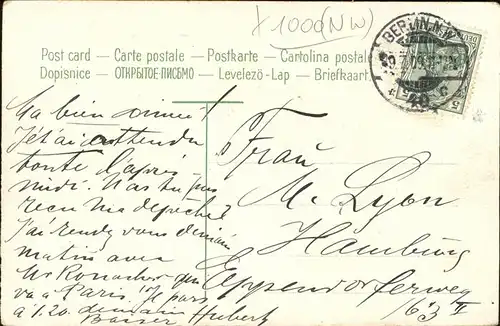 x 1000 (NW)
BERLIN N.W.
5
Post card – Carte postale – Postkarte – Cartolina postale
Dopisnice – ОТКРЫТОЕ ПИСЬМО – Levelező-Lap – Briefkaart
Ma bien aimée!
Je t'ai attendu
toute l'après-
midi. N'as tu pas
reçu ma depeche?
J'ai rendez vous demain
matin avec
Mr Ronacher qui
va à Paris
à 1.20. demain
Baiser Hubert
Frau
M. Lyon
Hamburg
Eppendorferweg
63 II